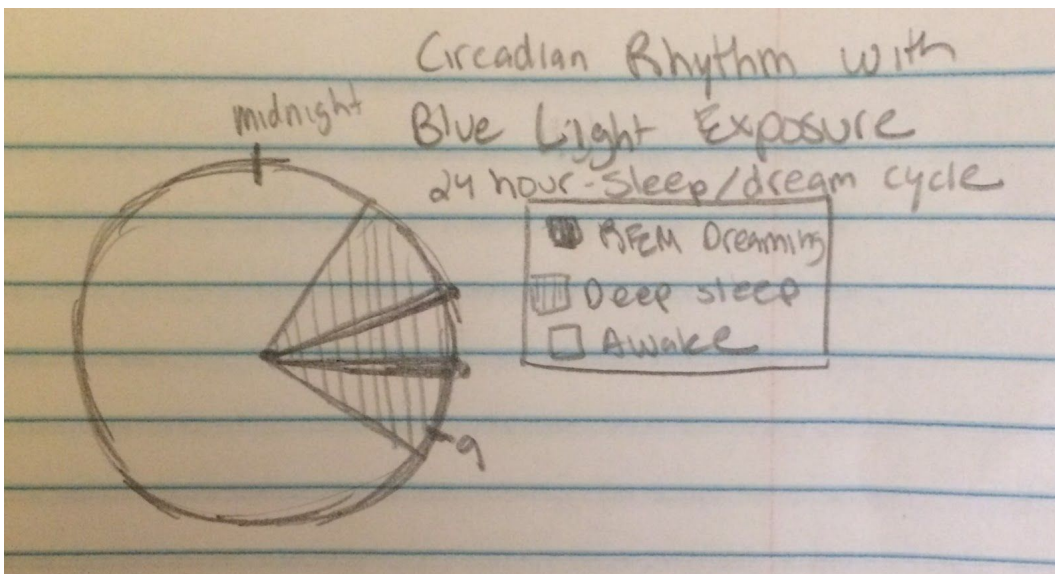 Circadian Rhythm with
midnight
Blue Light Exposure
24 hour-Sleep/dream cycle
REM Dreaming
Deep sleep
Awake
9